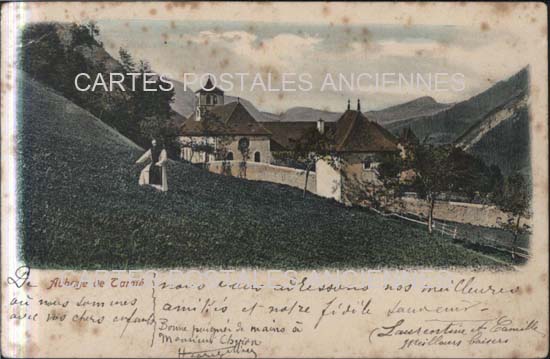 CARTES POSTALES ANCIENNES
CARTES POSTALES ANCIENNES
Abbaye de Tamié
De
où nous sommes
avec nos chers enfants
nous vous adressons nos meilleures
amitiés et notre fidèle souvenir
Bonne poignée de mains à
Monsieur
Laurentine et Camille
meilleurs baisers